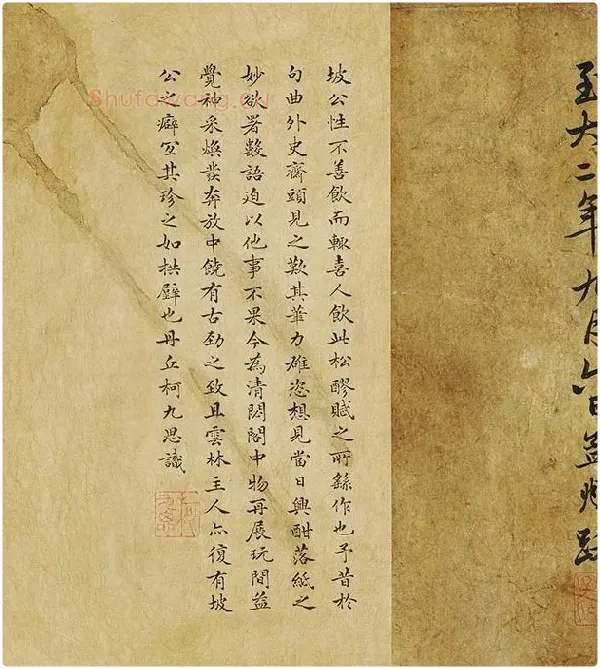 至大二年九月六日益
坡公性不善飲而輒喜人飲此松醪賦之所繇作也予昔於
句曲外史齋頭見之歎其筆力雄恣想見當日興酣落紙之
妙欲署數語迫以他事不果今為清閟閣中物再展玩間益
覺神采煥發奔放中饒有古勁之致且雲林主人亦復有坡
公之癖宜其珍之如拱璧也丹丘柯九思識
Shufawang.cn